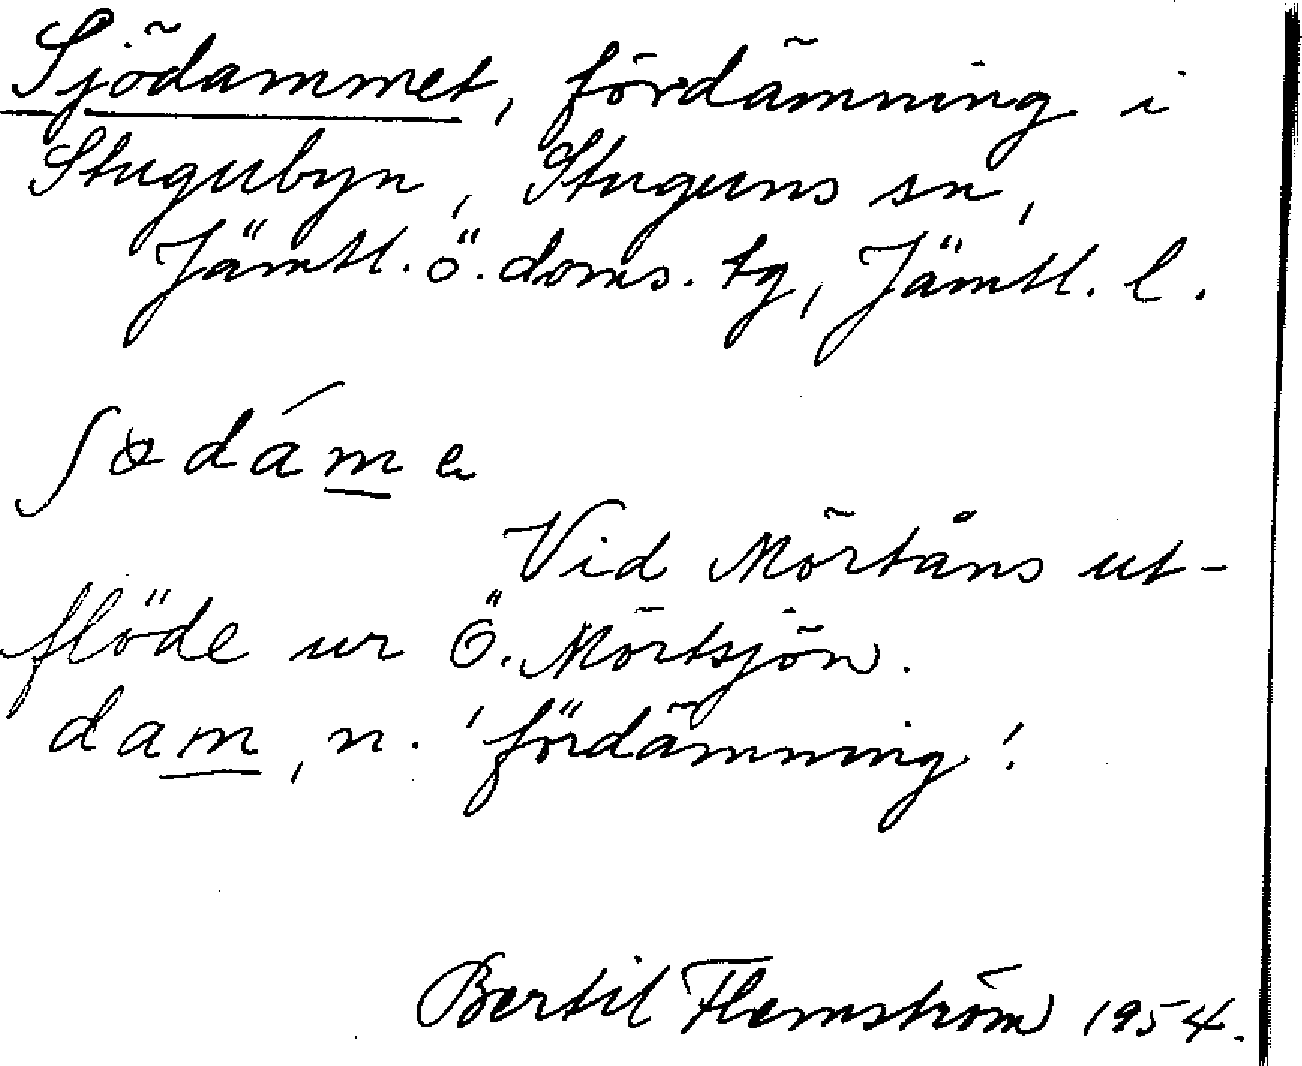 Sjödammet, fördämning i
Stugubyn, Stuguns sn,
Jämtl. ö. doms. tg, Jämtl. l.
Vid Mörtåns ut-
flöde ur Ö. Mörtsjön.
dam, n. 'fördämning'.
Bertil Flemström 1954.